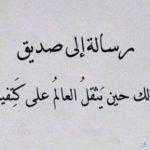 رسالة إلى صديق
لك حين يَثقلُ العالمُ على